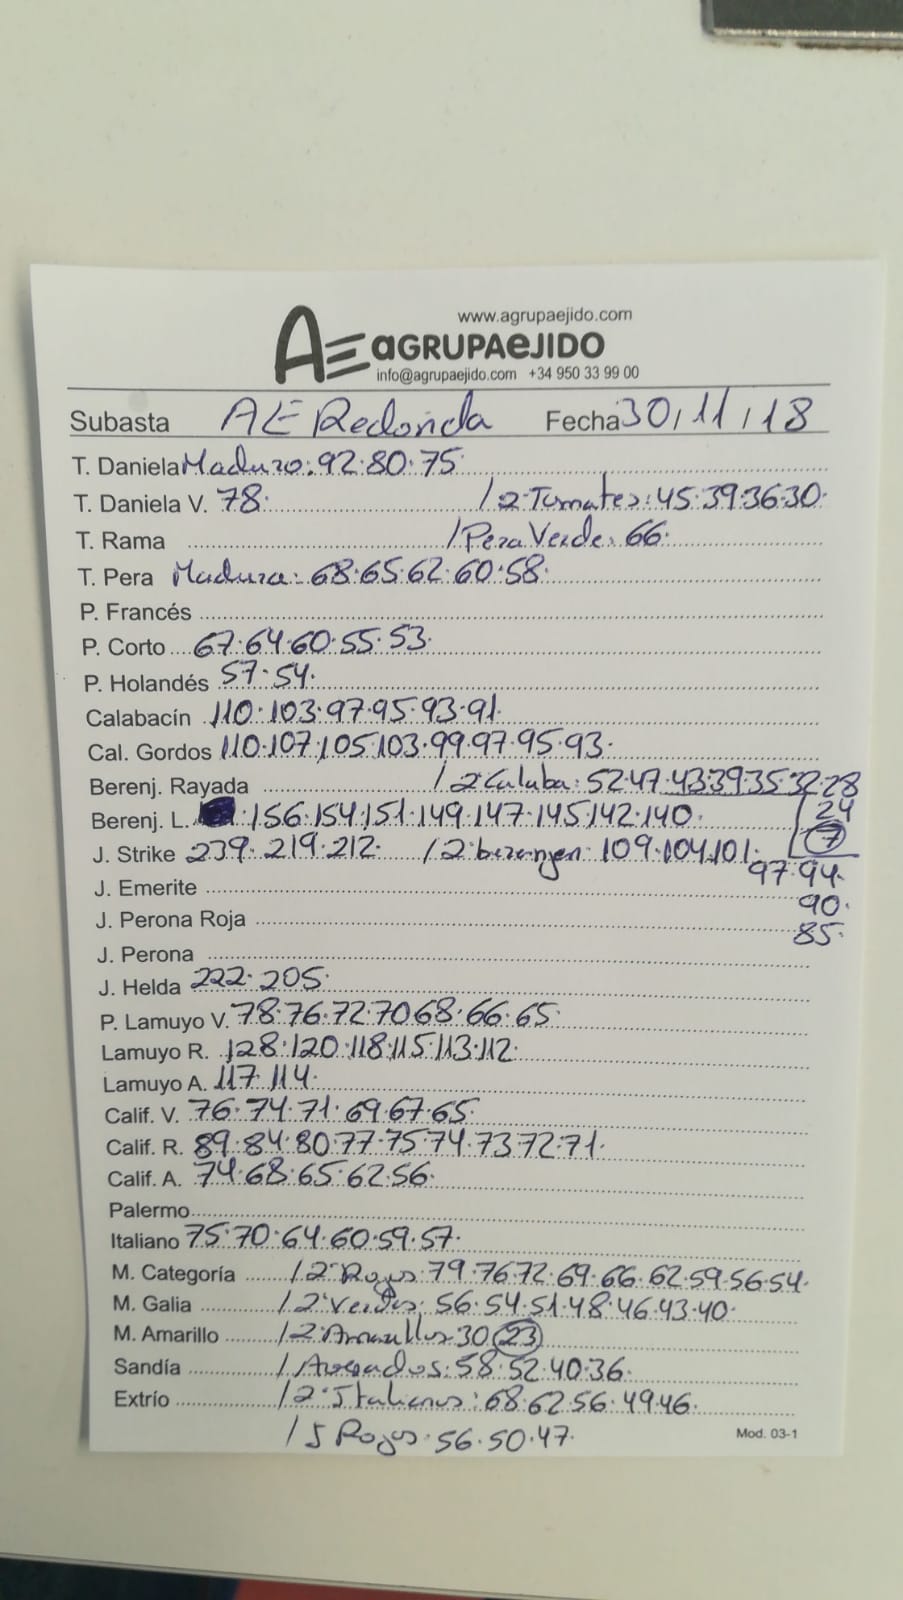 www.agrupaejido.com
AE aGRUPAeJIDO
info@agrupaejido.com +34 950 33 99 00
Subasta AE Redonda Fecha 30/11/18
T. Daniela Maduro: 92.80.75
T. Daniela V. 78. /2ª Tomates: 45.39.36.30.
T. Rama /Pera Verde: 66.
T. Pera Madura: 68.65.62.60.58.
P. Francés
P. Corto 67.64.60.55.53.
P. Holandés 57.54.
Calabacín 110.103.97.95.93.91.
Cal. Gordos 110.107.105.103.99.97.95.93.
Berenj. Rayada /2ª Calaba: 52.47.43.39.35.32.28
24
Berenj. L. : 156.154.151.149.147.145.142.140.
7
J. Strike 239.219.212. /2ª berenjen: 109.104.101.
97.94.
J. Emerite
90.
J. Perona Roja
85.
J. Perona
J. Helda 222.205.
P. Lamuyo V. 78.76.72.70.68.66.65.
Lamuyo R. 128.120.118.115.113.112.
Lamuyo A. 117.114.
Calif. V. 76.74.71.69.67.65.
Calif. R. 89.84.80.77.75.74.73.72.71.
Calif. A. 74.68.65.62.56.
Palermo
Italiano 75.70.64.60.59.57.
M. Categoría /2ª Rojos: 79.76.72.69.66.62.59.56.54.
M. Galia /2ª Verdes: 56.54.51.48.46.43.40.
M. Amarillo /2ª Amarillos 30 23
Sandía /Asurados: 58.52.40.36.
Extrío /2ª Italianos: 68.62.56.49.46.
/J Rojos: 56.50.47.
Mod. 03-1